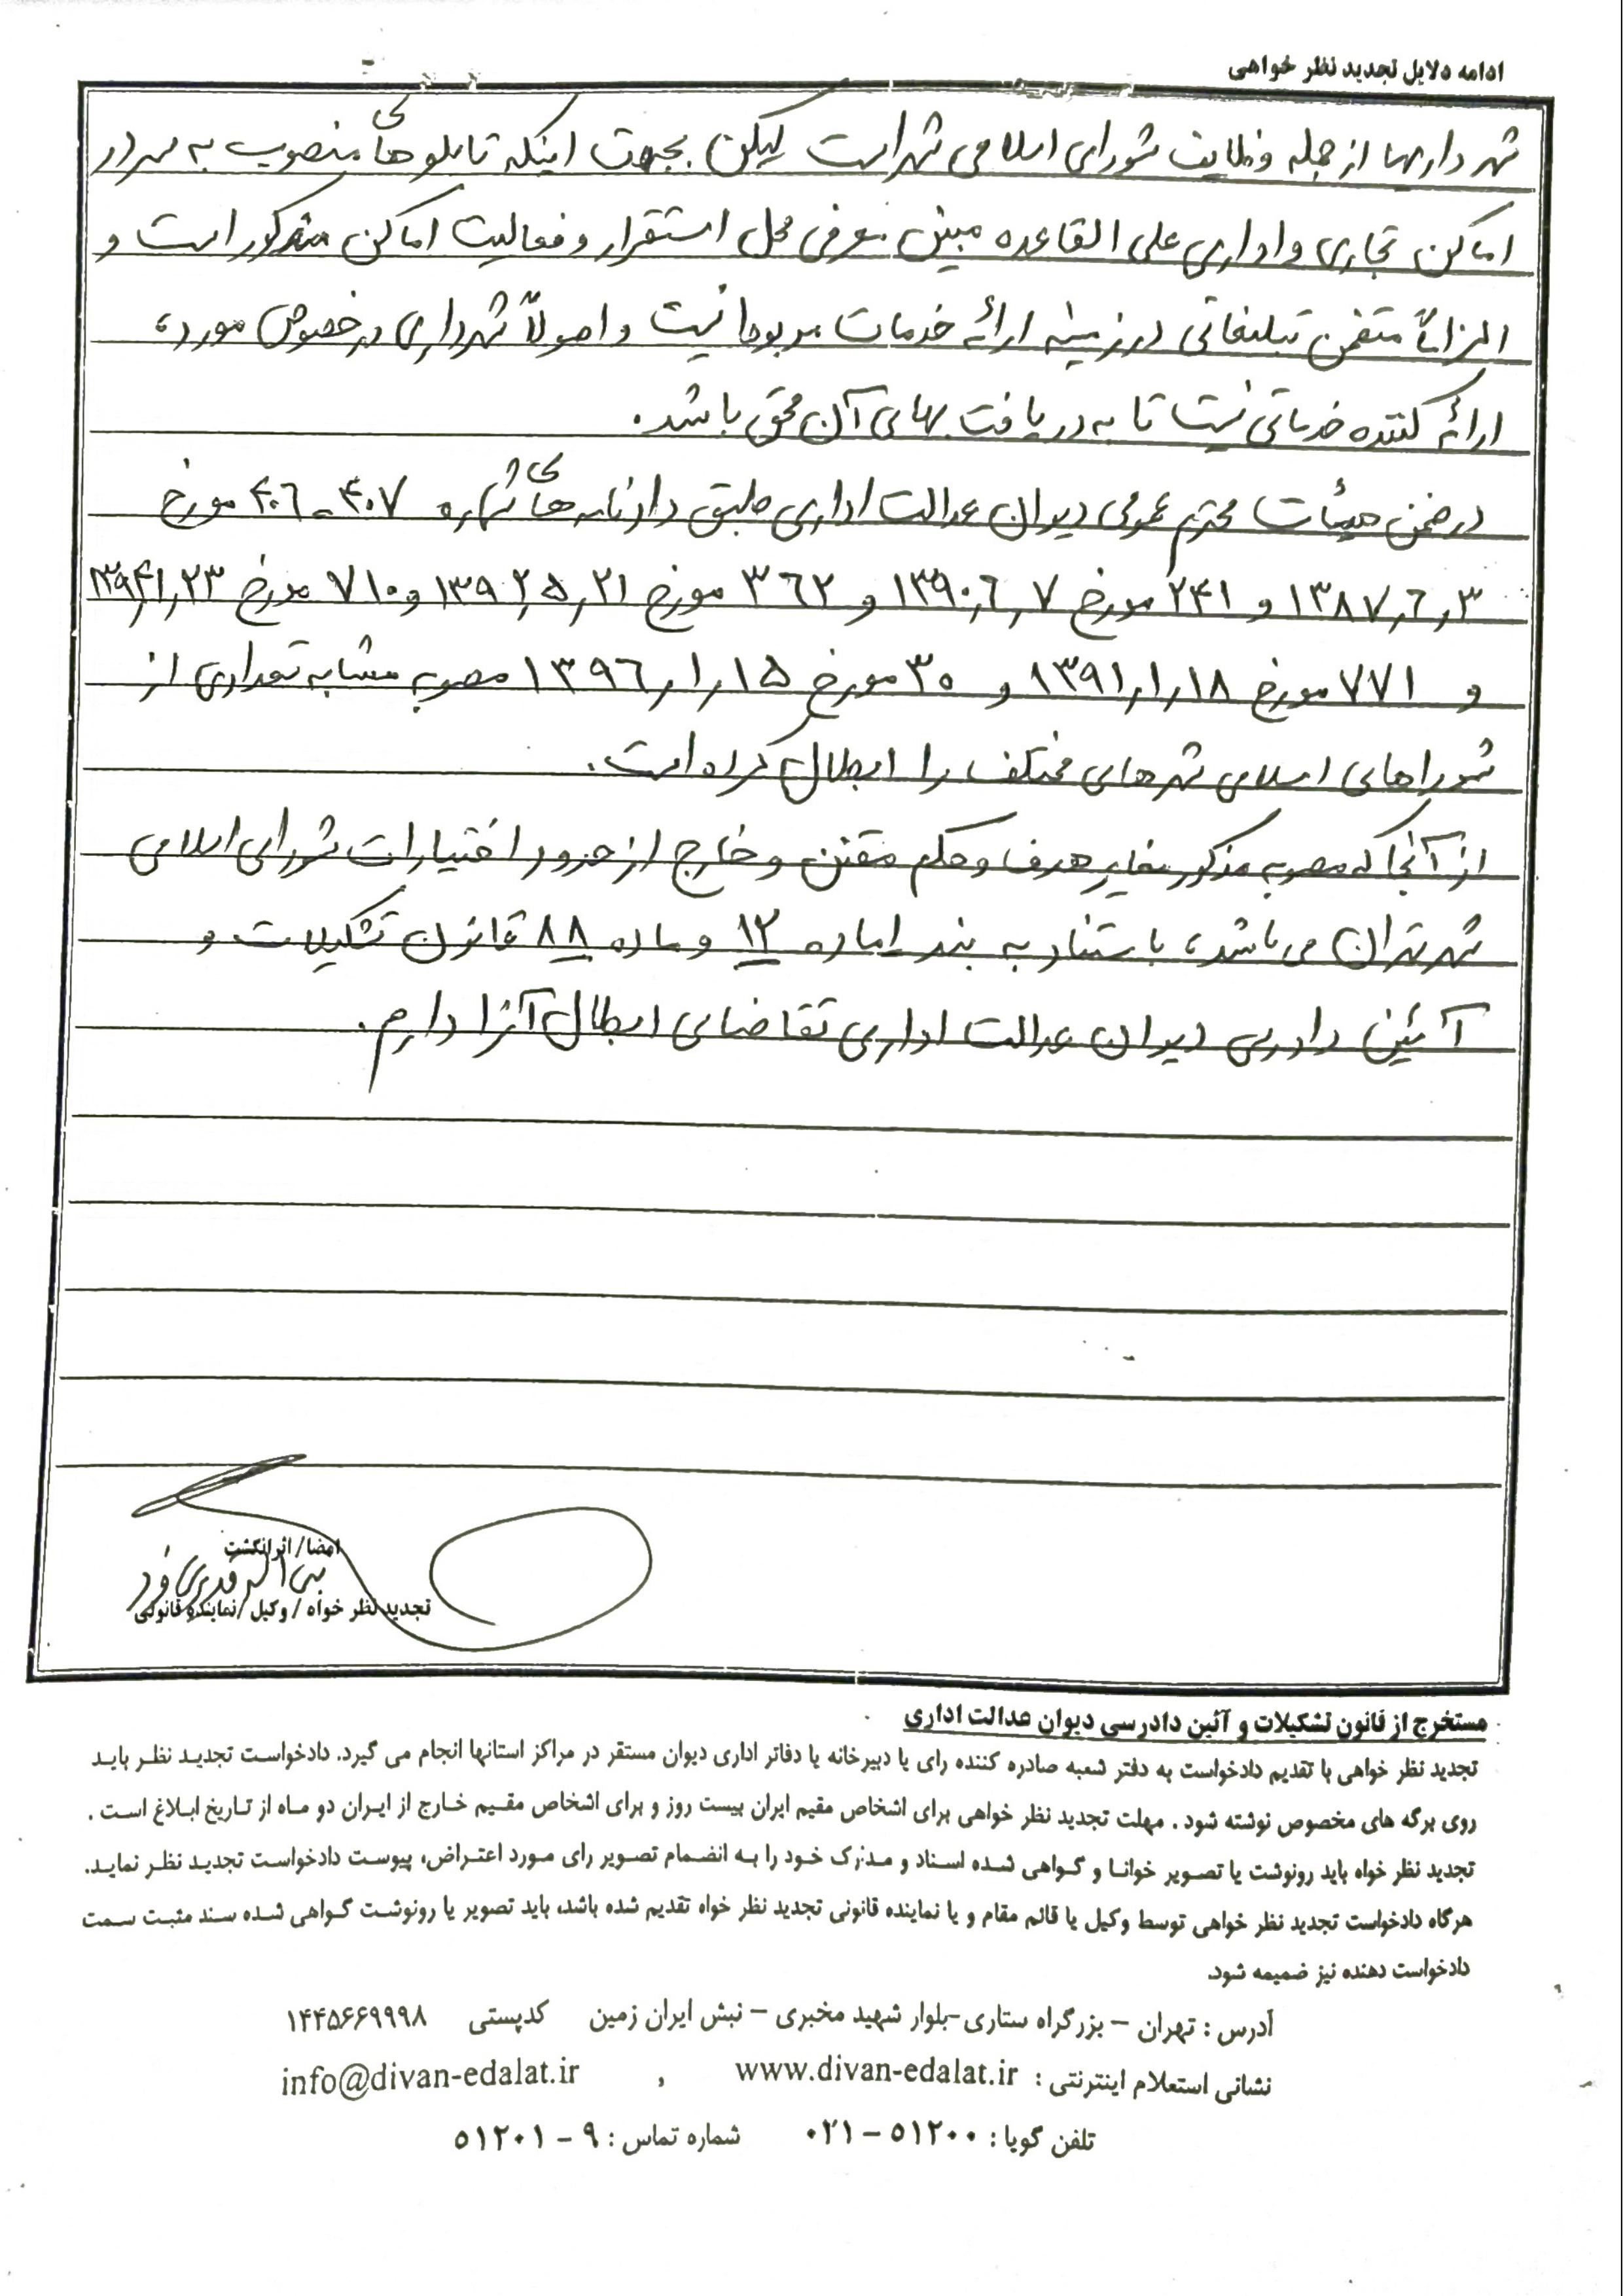 ادامه دلایل تجدید نظر خواهی
شهرداریها از جمله وظایف شورای اسلامی شهر است لیکن بجهت اینکه تابلوهای منصوب به سردر
اماکن تجاری و اداری علی القاعده مبین معرفی محل استقرار و فعالیت اماکن مذکور است و
الزاماً متضمن تبلیغاتی در زمینه ارائه خدمات مربوطه نیست و اصولاً شهرداری در خصوص مورد،
ارائه کننده خدماتی نیست تا به دریافت بهای آن محق باشد.
در ضمن هیئات محترم عمومی دیوان عدالت اداری طبق دادنامه های شماره ۴۰۷ - ۴۰۶ مورخ
۱۳۸۷٫۶٫۳ و ۲۴۱ مورخ ۱۳۹۰٫۶٫۷ و ۳۶۲ مورخ ۱۳۹۲٫۵٫۲۱ و ۷۱۰ مورخ
و ۷۷۱ مورخ ۱۳۹۱٫۱٫۱۸ و ۳۰ مورخ ۱۳۹۶٫۱٫۱۵ مصوبه مشابه تعدادی از
شوراهای اسلامی شهرهای مختلف را ابطال کرده است.
از آنجا که مصوبه مذکور مغایر هدف و حکم مقنن و خارج از حدود اختیارات شورای اسلامی
شهر تهران می باشد، با استناد به بند ۱ماده ۱۲ و ماده ۸۸ قانون تشکیلات و
آئین دادرسی دیوان عدالت اداری تقاضای ابطال آنرا دارم.
امضا/ اثرانگشت
تجدید نظر خواه / وکیل /نماینده قانونی
مستخرج از قانون تشکیلات و آئین دادرسی دیوان عدالت اداری
تجدید نظر خواهی با تقدیم دادخواست به دفتر شعبه صادره کننده رای یا دبیرخانه یا دفاتر اداری دیوان مستقر در مراکز استانها انجام می گیرد. دادخواست تجدید نظر باید
روی برگه های مخصوص نوشته شود . مهلت تجدید نظر خواهی برای اشخاص مقیم ایران بیست روز و برای اشخاص مقیم خارج از ایران دو ماه از تاریخ ابلاغ است .
تجدید نظر خواه باید رونوشت یا تصویر خوانا و گواهی شده اسناد و مدارک خود را به انضمام تصویر رای مورد اعتراض، پیوست دادخواست تجدید نظر نماید.
هرگاه دادخواست تجدید نظر خواهی توسط وکیل یا قائم مقام و یا نماینده قانونی تجدید نظر خواه تقدیم شده باشد، باید تصویر یا رونوشت گواهی شده سند مثبت سمت
دادخواست دهنده نیز ضمیمه شود.
آدرس : تهران – بزرگراه ستاری-بلوار شهید مخبری – نبش ایران زمین کدپستی ۱۴۴۵۶۶۹۹۹۸
نشانی استعلام اینترنتی : www.divan-edalat.ir , info@divan-edalat.ir
تلفن گویا : ۵۱۲۰۰ – ۰۲۱ شماره تماس : ۹ – ۵۱۲۰۱